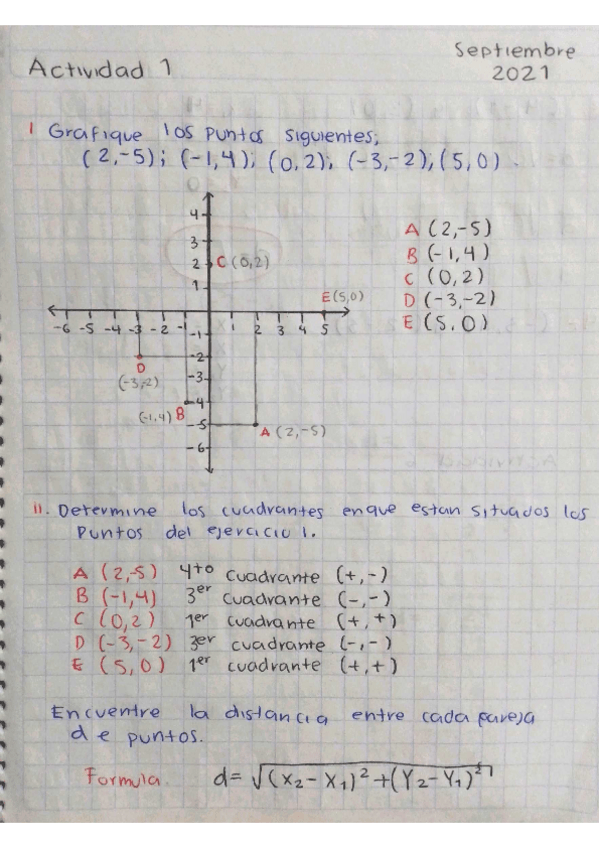 Septiembre
Actividad 1 2021
I Grafique los puntos siguientes;
(2,-5); (-1,4); (0,2); (-3,-2), (5,0).
4
3
2 C (0,2)
1
E (5,0)
-6 -5 -4 -3 -2 -1 1 2 3 4 5
-1
-2
D
(-3,-2)
-3
-4
(-1,4) B
-5
A (2,-5)
-6
A (2,-5)
B (-1,4)
C (0,2)
D (-3,-2)
E (5,0)
II. Determine los cuadrantes enque estan situados los
Puntos del ejercicio 1.
A (2,-5) 4to cuadrante (+,-)
B (-1,4) 3er cuadrante (-,-)
C (0,2) 1er cuadrante (+,+)
D (-3,-2) 3er cuadrante (-,-)
E (5,0) 1er cuadrante (+,+)
Encuentre la distancia entre cada pareja
de puntos.
Formula. d=√(X₂-X₁)²+(Y₂-Y₁)²